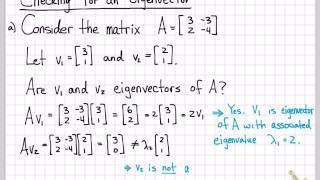 Checking for an Eigenvector
a) Consider the matrix A = [3 -3; 2 -4]
Let v₁ = [3; 1] and v₂ = [2; 1].
Are v₁ and v₂ eigenvectors of A?
Av₁ = [3 -3; 2 -4][3; 1] = [6; 2] = 2[3; 1] = 2v₁
→ Yes. v₁ is eigenvector
of A with associated
eigenvalue λ₁ = 2.
Av₂ = [3 -3; 2 -4][2; 1] = [3; 0] ≠ λ₂[2; 1]
→ v₂ is not a